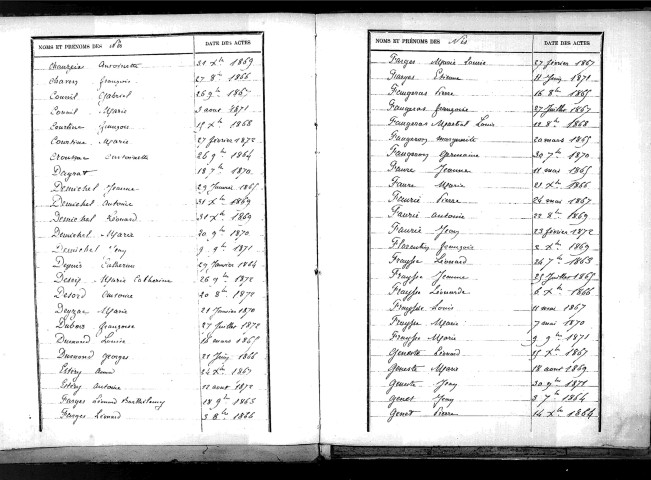 NOMS ET PRÉNOMS DES Nés DATE DES ACTES
Antoinette 31 Xbre 1869
Chavery françoise 27 8bre 1866
Conseil Gabriel 26 9bre 1867
Conseil Marie 3 aout 1871
Courtine françois 15 Xbre 1868
Courtine Marie 27 février 1872
Antoinette 26 9bre 1864
18 7bre 1870
Demichel Jeanne 29 Janvier 1865
Demichel Antoine 31 Xbre 1869
Demichel Léonard 31 Xbre 1869
Demichel Marie 20 9bre 1870
Demichel Jeny 9 9bre 1871
Catherine 29 Janvier 1864
Marie Catherine 26 9bre 1872
Desord Antoine 20 8bre 1872
Deyzac Marie 21 Janvier 1870
Dubois françoise 27 Juillet 1872
Dumond Louise 16 mars 1865
Dumond Georges 21 Juin 1866
Estéry Anna 24 Xbre 1867
Estéry Antoine 12 aout 1872
Farges Léonard Barthélemy 18 9bre 1865
Farges Léonard 3 8bre 1866
NOMS ET PRÉNOMS DES Nés DATE DES ACTES
Farges Marie Louise 27 février 1867
Farges Etienne 11 Juin 1871
Faugeras Pierre 16 8bre 1865
Faugeras françoise 27 Juillet 1867
Faugeras Martial Louis 12 8bre 1868
Faugeron marguerite 20 mars 1865
Faugeron Germaine 30 7bre 1870
Faure Jeanne 11 mai 1865
Faure Marie 21 Xbre 1866
Faurie Pierre 24 mai 1867
Faurie Antoine 22 8bre 1869
Faurie Jeny 23 février 1872
Florentin françoise 2 Xbre 1869
Fraysse Léonard 26 7bre 1863
Fraysse Jeanne 25 Juillet 1865
Fraysse Léonarde 6 Xbre 1866
Fraysse Louis 11 mai 1867
Fraysse Marie 7 mai 1870
Fraysse Marie 9 9bre 1871
Geneste Léonard 15 Xbre 1867
Geneste Marie 18 aout 1869
Geneste Jeny 30 9bre 1871
Genet Jeny 3 7bre 1864
Genet Pierre 14 Xbre 1864